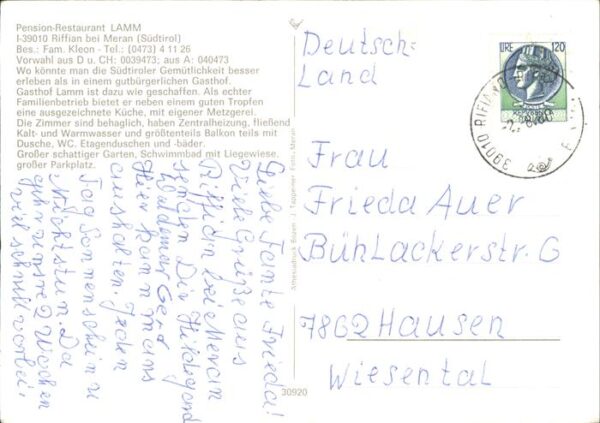 Pension-Restaurant LAMM
I-39010 Riffian bei Meran (Südtirol)
Bes.: Fam. Kleon - Tel.: (0473) 4 11 26
Vorwahl aus D u. CH: 0039473; aus A: 040473
Wo könnte man die Südtiroler Gemütlichkeit besser
erleben als in einem gutbürgerlichen Gasthof.
Gasthof Lamm ist dazu wie geschaffen. Als echter
Familienbetrieb bietet er neben einem guten Tropfen
eine ausgezeichnete Küche, mit eigener Metzgerei.
Die Zimmer sind behaglich, haben Zentralheizung, fließend
Kalt- und Warmwasser und größtenteils Balkon teils mit
Dusche, WC. Etagenduschen und -bäder.
Großer schattiger Garten, Schwimmbad mit Liegewiese,
großer Parkplatz.
Liebe Tante Frieda!
Viele Grüße aus
Riffian bei Meran
senden Dir Hildegard
Gerd
Hier kann mans
aushalten. Jeden
Tag Sonnenschein u
Nichtstun. Da
gehn unsre 2 Wochen
viel schnell vorbei.
30920
Deutsch-
Land
LIRE 120
39010 RIFIANO
Frau
Frieda Auer
Bühlackerstr. 6
7862 Hausen
Wiesental